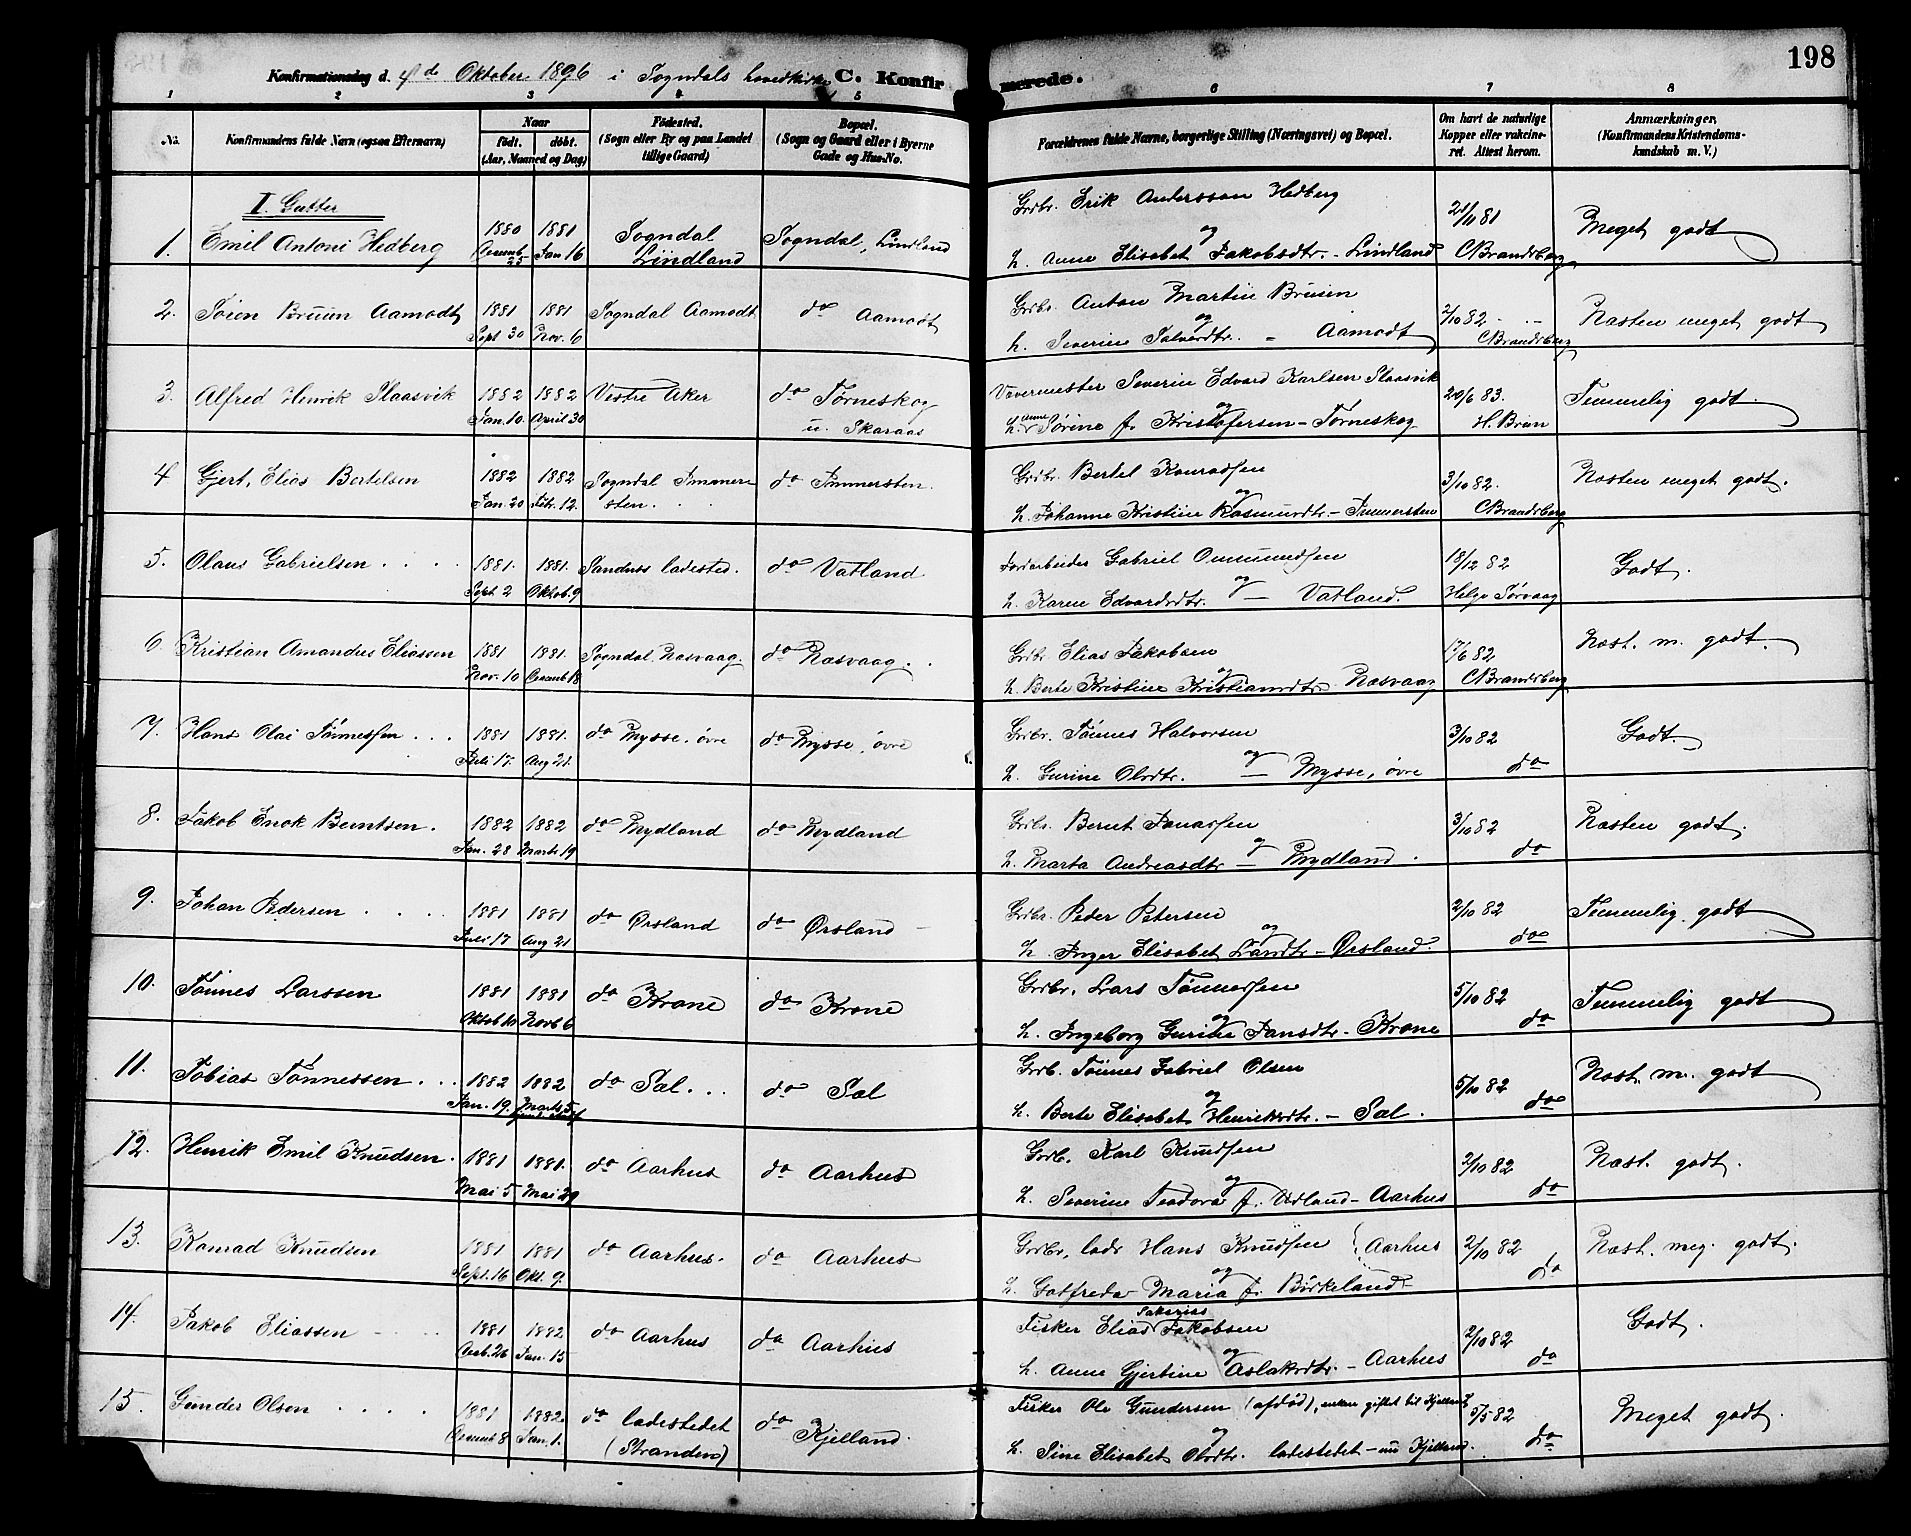 198
Konfirmationsdag d. 4de Oktober 1896 i Sogndals hovedkirke C. Konfirmerede.
1 2 3 4 5 6 7 8
No. Konfirmandens fulde Navn (ogsaa Efternavn) Naar født. døbt. (Aar, Maaned og Dag) Fødested. (Sogn eller By og paa Landet tillige Gaard) Bopæl. (Sogn og Gaard eller i Byerne Gade og Hus-No. Forældrenes fulde Navne, borgerlige Stilling (Næringsvei) og Bopæl. Om havt de naturlige Kopper eller vakcineret. Attest herom. Anmærkninger. (Konfirmandens Kristendomskundskab m. V.)
I. Gutter
Grdbr. Erik Anderssen Hedberg
1. Emil Antoni Hedberg 1880 Decemb. 25 1881 Jan 16 Sogndal Lindland Sogndal, Lindland og 21/11 81 Meget godt
h. Anne Elisabet Jakobsdtr. - Lindland CBrandsberg
Grdbr. Anton Martin Bruun
2. Bruun Aamodt 1881 Sept 30 1881 Nov. 6 Sogndal Aamodt do Aamodt og 2/10 82 Næsten meget godt
h. Severine - Aamodt CBrandsberg
Vevermester Severin Edvard Karlsen Slaasvik
3. Alfred Henrik Slaasvik 1882 Jan. 10. 1882 April 30 Vestre Aker do Tørneskog u. Skaraas og 20/6 83. Temmelig godt.
h. Anne Sørine f. Kristofersen - Tørneskog H. Brun
Grdbr. Bertel Konradsen
4 Gjert, Elias Bertelsen 1882 Jan. 20 1882 Febr. 12. Sogndal Immersten do Immersten. og 3/10 82. Næsten meget godt.
h. Johanne Kristine Rasmusdtr. - Immersten CBrandsberg
Jordarbeider Gabriel Ommundsen
5. Olaus Gabrielsen 1881. Sept. 2 1881. Oktob. 9 Sandnes ladested. do Vatland og 18/12 82 Godt.
h. Karen Edvardsdtr. - Vatland. Helge Tørvaag
Grdbr Elias Jakobsen
6 Kristian Amandus Eliassen 1881 Nov. 10 1881. Decemb 18 Sogndal. Næsvaag do Næsvaag. og 17/6 82 Næst. m. godt.
h. Berte Kristine Kristiansdtr. Næsvaag CBrandsberg
Grdbr. Tønnes Halvorsen
7. Hans Olai Tønnessen 1881 Juli 17. 1881. Aug 21. do Mysse. øvre do Mysse, øvre og 3/10 82 Godt.
h. Gurine Olsdtr. - Mysse, øvre do
Grdbr. Bernt Janassen
8. Jakob Enok Berntsen. 1882 Jan. 28 1882 Marts 19 do Mydland do Mydland og 3/10 82 Næsten godt.
h. Marta Andreasdtr. - Mydland. do
Grdbr. Peder Petersen
9. Johan Pedersen 1881 Juli 17 1881 Aug 21 do Ørsland do Ørsland og 2/10 82 Temmelig. godt
h. Inger Elisabet - Ørsland. do
Grdbr. Lars Tønnessen
10. Tønnes Larssen 1881 Oktob 1881 Novb 6 do Krone do Krone og 5/10 82 Temmelig godt
h. Ingeborg Gurine Jansdtr. - Krone do
Grdb. Tønnes Gabriel Olsen
11. Tobias Tønnessen 1882 Jan. 19. 1882 Marts 5 do Sæl do Sæl og 5/10 82 Næst. m. godt
h. Berte Elisabet Henriksdtr. - Sæl. do
Grdb. Karl Knudsen
12. Henrik Emil Knudsen. 1881 Mai 5 1881. Mai 29 do Aarhus do Aarhus og 2/10 82 Næst. godt.
h. Severine Teodora f. Urland - Aarhus do
Grdbr, lods Hans Knudsen Aarhus
13. Konrad Knudsen 1881 Sept. 16 1881 Okt. 9. do Aarhus. do Aarhus og 2/10 82 Næst. meg. godt.
h. Gotfreda Maria f. Birkeland do
Fisker Elias Sakarias Jakobsen
14. Jakob Eliassen 1881 Decb. 26 1882 Jan. 15 do Aarhus do Aarhus og 2/10 82 Godt.
h. Anne Gjertine Aslaksdtr. - Aarhus do
Fisker Ole Gundersen (afdød), enken giftet til Kjelland
15. Gunder Olsen 1881 Decemb 8 1882 Jan. 1. do ladestedet (Stranden) do Kjelland. og 5/5 82 Meget godt.
h. Sine Elisabet Olsdtr. ladestedet - nu Kjelland. do